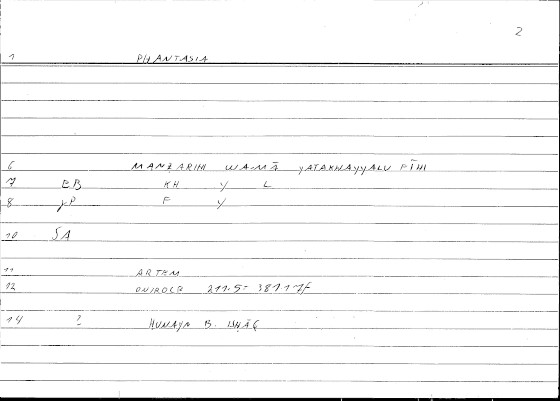 2
1 PHANTASIA
6 MANẒARIHI WAMĀ YATAKHAYYALU FĪHI
7 EB KH Y L
8 γP F Y
10 SA
11 ARTEM
12 ONIROCR 211.5- 381.17f
14 ? HUNAYN B. ISḤĀQ